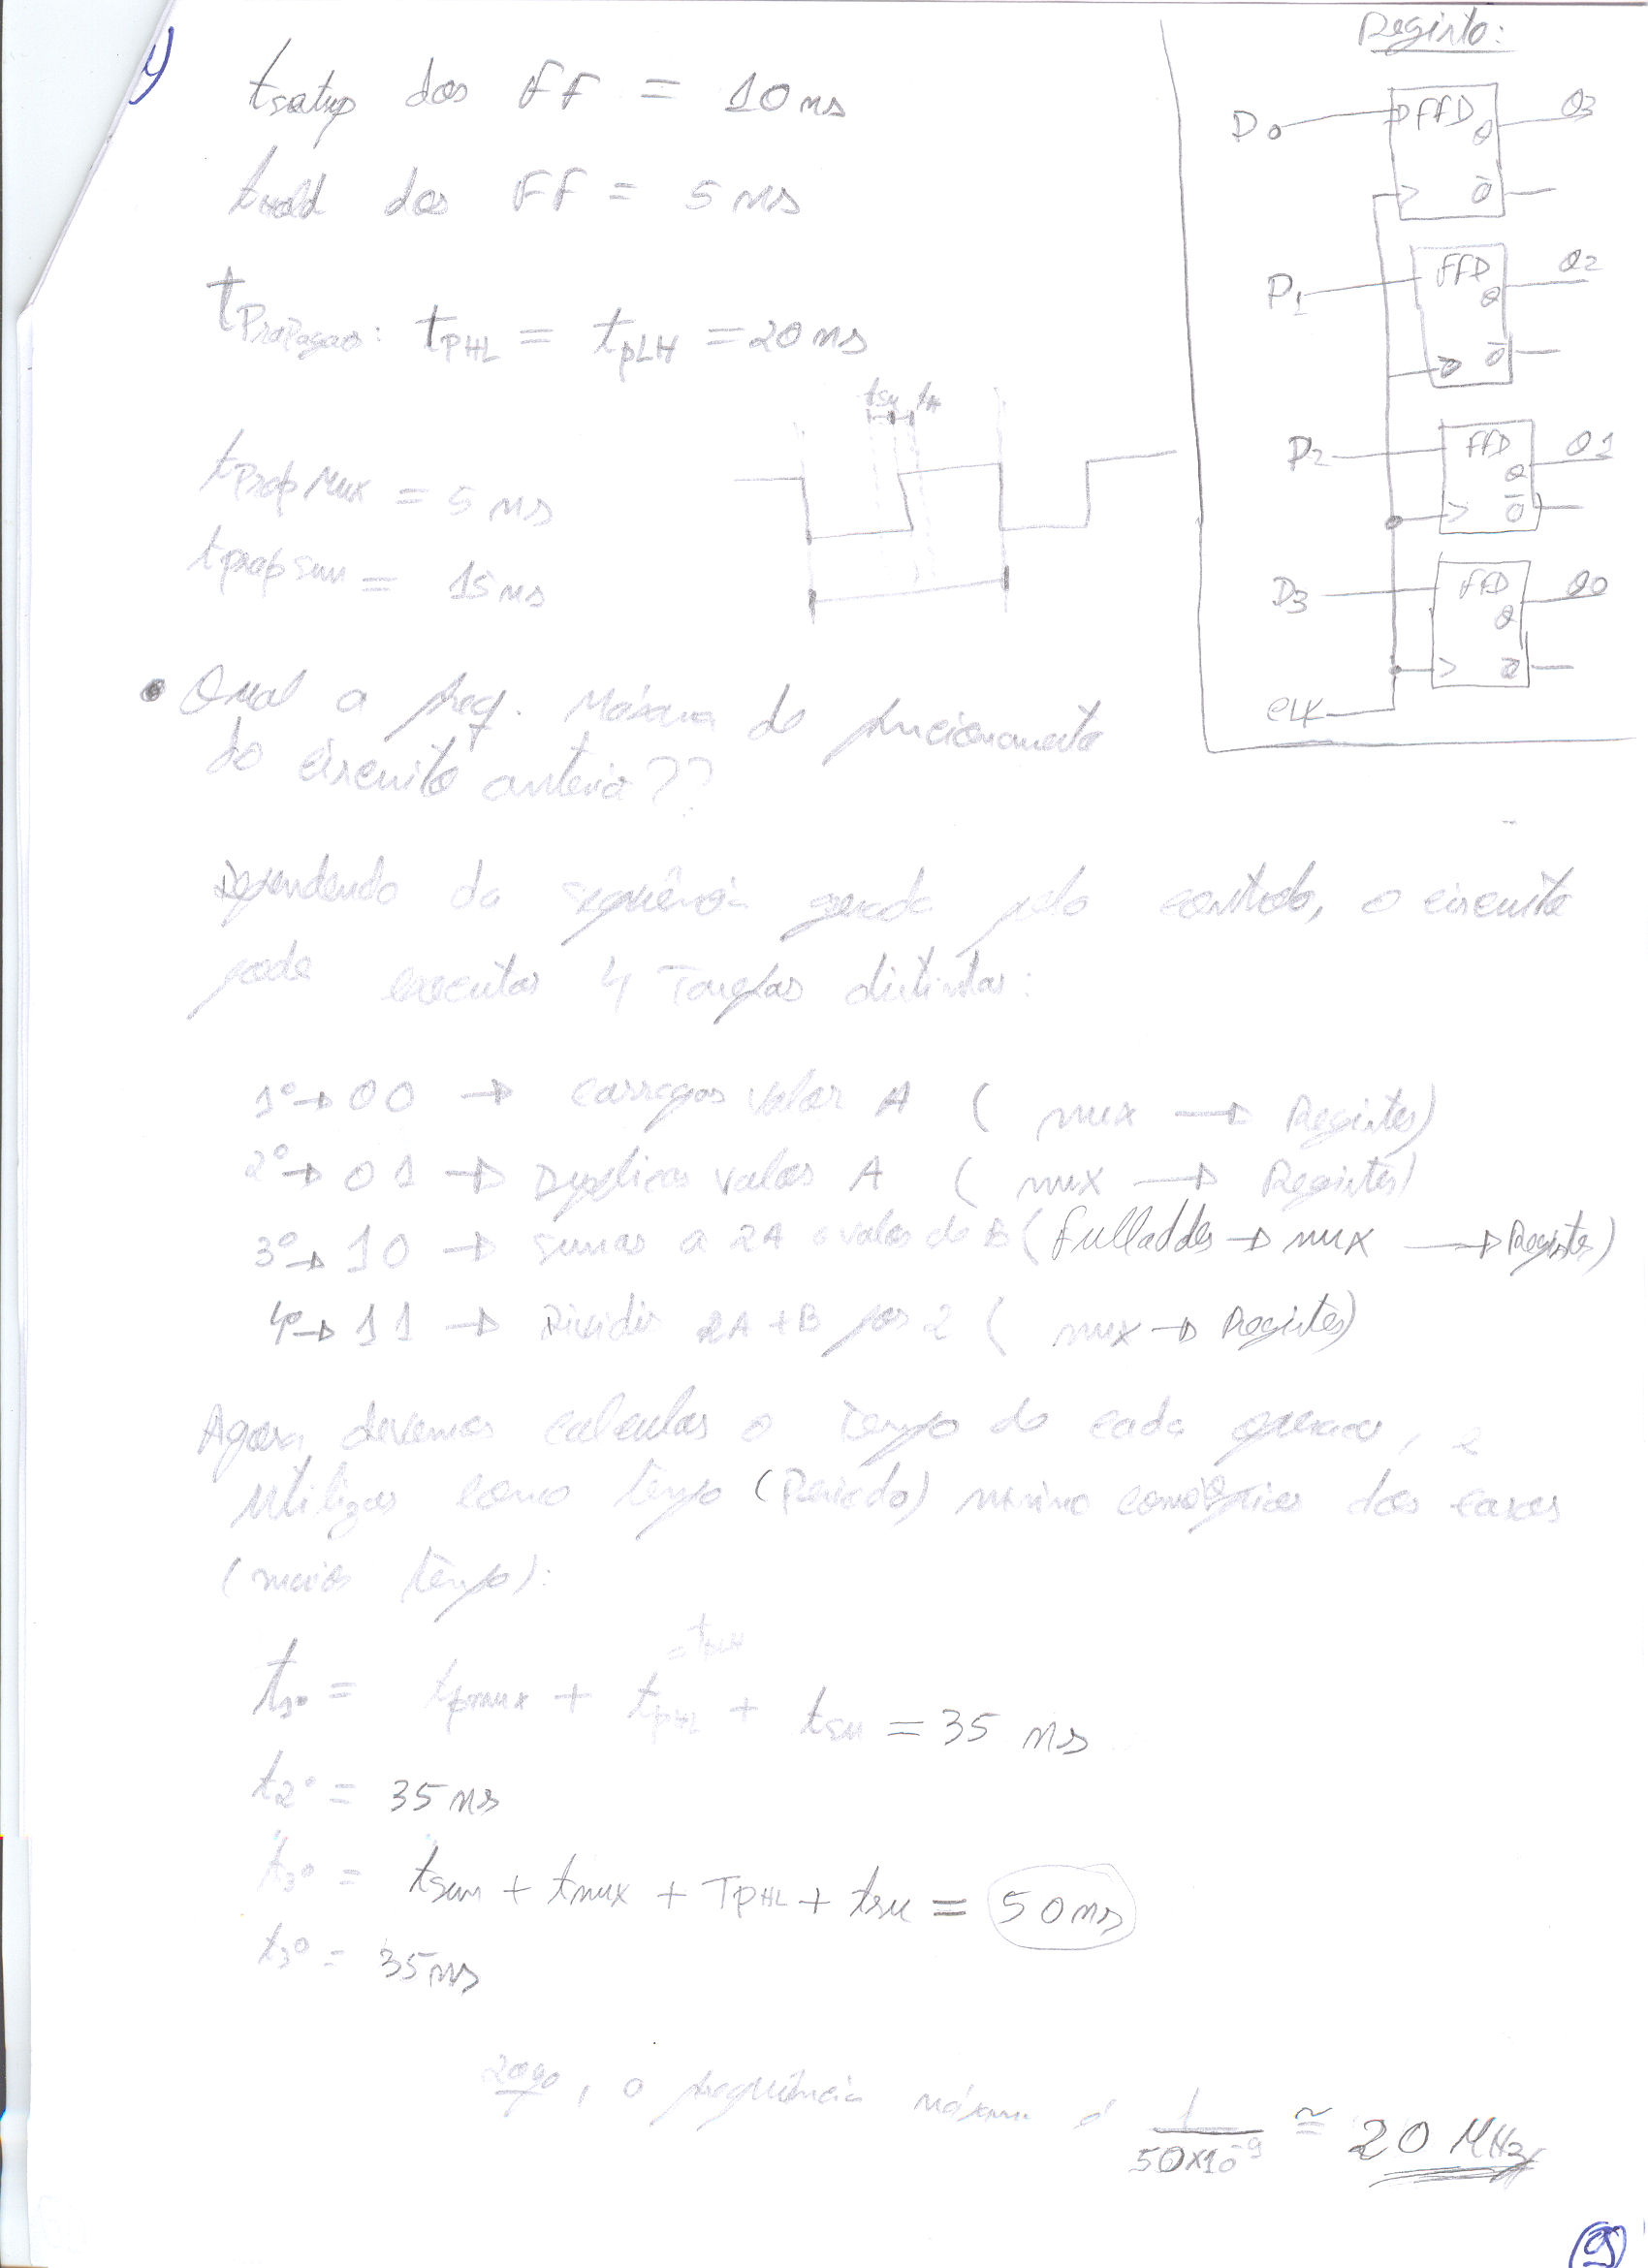 4)
tsetup dos FF = 10 ns
thold dos FF = 5 ns
tPropagao: tPHL = tpLH = 20 ns
tProp Mux = 5 ns
tprop sum = 15 ns
tsu tH
Registo:
D0 FFD Q Q3
> Q̅
D1 FFD Q Q2
> Q̅
D2 FFD Q Q1
> Q̅
D3 FFD Q Q0
> Q̅
CLK
• Qual a freq. Máxima de funcionamento
do circuito anterior??
Dependendo da sequência gerada pelo controlo, o circuito
pode executar 4 Tarefas distintas:
1º → 00 → carregar valor A ( mux → Registos)
2º → 01 → Duplicar valor A ( mux → Registos)
3º → 10 → somar a 2A o valor de B ( Fulladder → mux → Registos)
4º → 11 → Dividir 2A+B por 2 ( mux → Registos)
Agora, devemos calcular o tempo de cada operacao, e
utilizar como tempo (Periodo) minimo o dos casos
(maior tempo):
= tpLH
t1º = tpmux + tpHL + tsu = 35 ns
t2º = 35 ns
t3º = tsum + tmux + TpHL + tsu = 50 ns
t3º = 35 ns
Logo, a frequência máxima é 1/50×10⁻⁹ ≅ 20 MHz
9